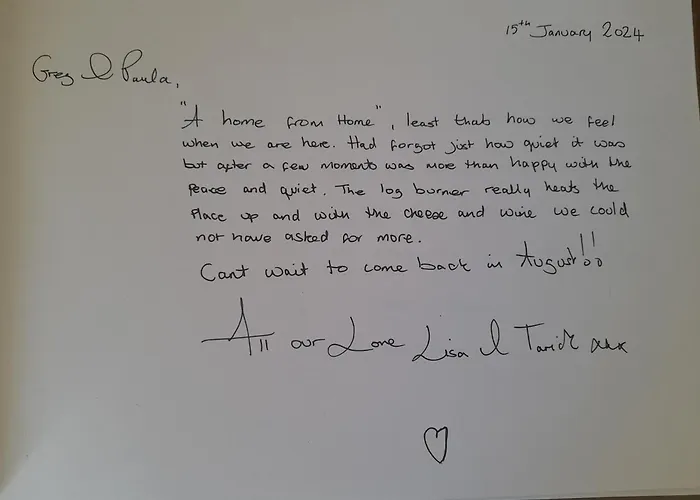 15th January 2024
Greg & Paula,
"A home from Home", least thats how we feel
when we are here. Had forgot just how quiet it was
but after a few moments was more than happy with the
Peace and quiet. The log burner really heats the
Place up and with the cheese and wine we could
not have asked for more.
Cant wait to come back in August!!
All our Love Lisa & Tarick xxx